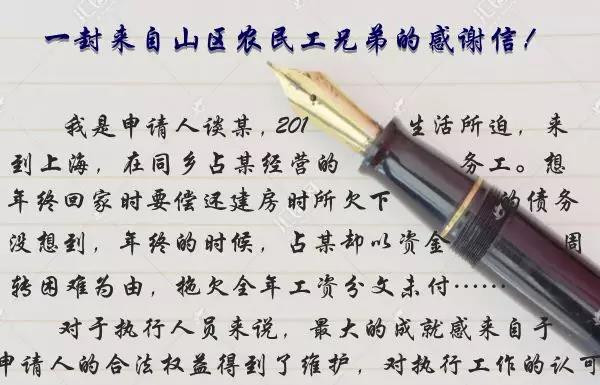 一封来自山区农民工兄弟的感谢信!
我是申请人谈某,201 生活所迫,来
到上海,在同乡占某经营的 务工。想
年终回家时要偿还建房时所欠下 的债务
没想到,年终的时候,占某却以资金 周
转困难为由,拖欠全年工资分文未付……
对于执行人员来说,最大的成就感来自于
申请人的合法权益得到了维护,对执行工作的认可